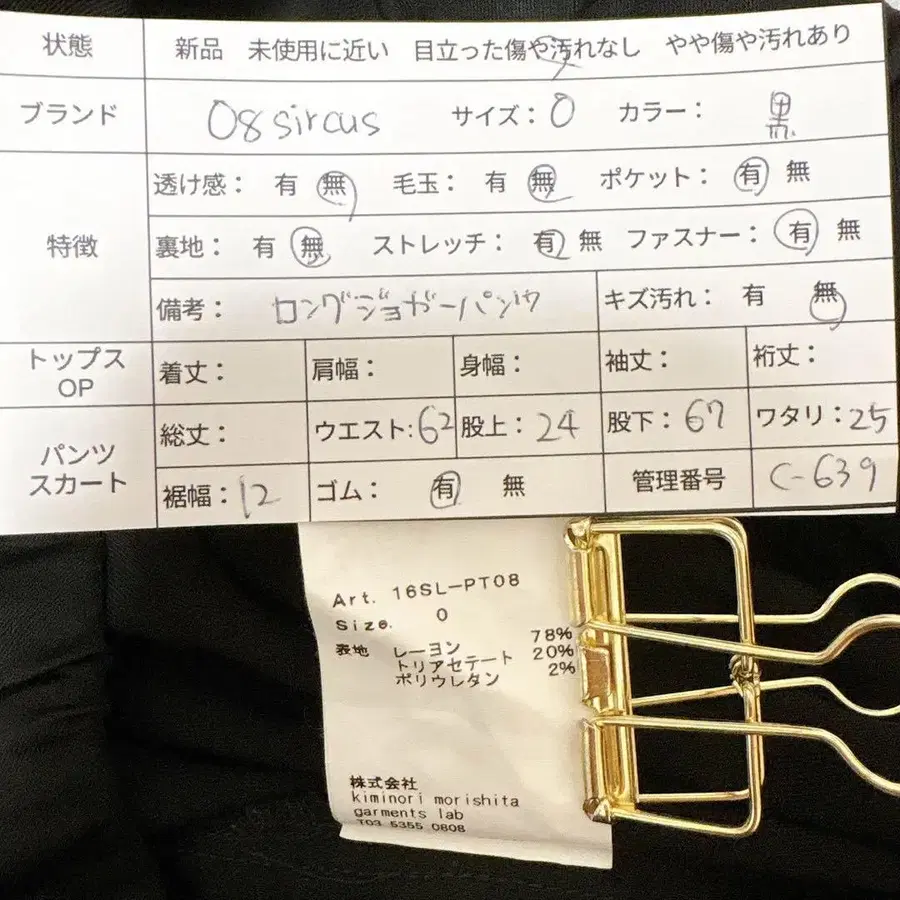 状態 新品 未使用に近い 目立った傷や汚れなし やや傷や汚れあり
ブランド 08sircus サイズ：0 カラー：黒
特徴
透け感： 有 無 毛玉： 有 無 ポケット： 有 無
裏地： 有 無 ストレッチ： 有 無 ファスナー： 有 無
備考： ロングジョガーパンツ キズ汚れ： 有 無
トップス OP 着丈： 肩幅： 身幅： 袖丈： 裄丈：
パンツ スカート
総丈： ウエスト:62 股上：24 股下：67 ワタリ：25
裾幅：12 ゴム： 有 無 管理番号 C-639
Art. 16SL-PT08
Size. 0
表地 レーヨン 78%
トリアセテート 20%
ポリウレタン 2%
株式会社
kiminori morishita
garments lab
T03 5355 0808